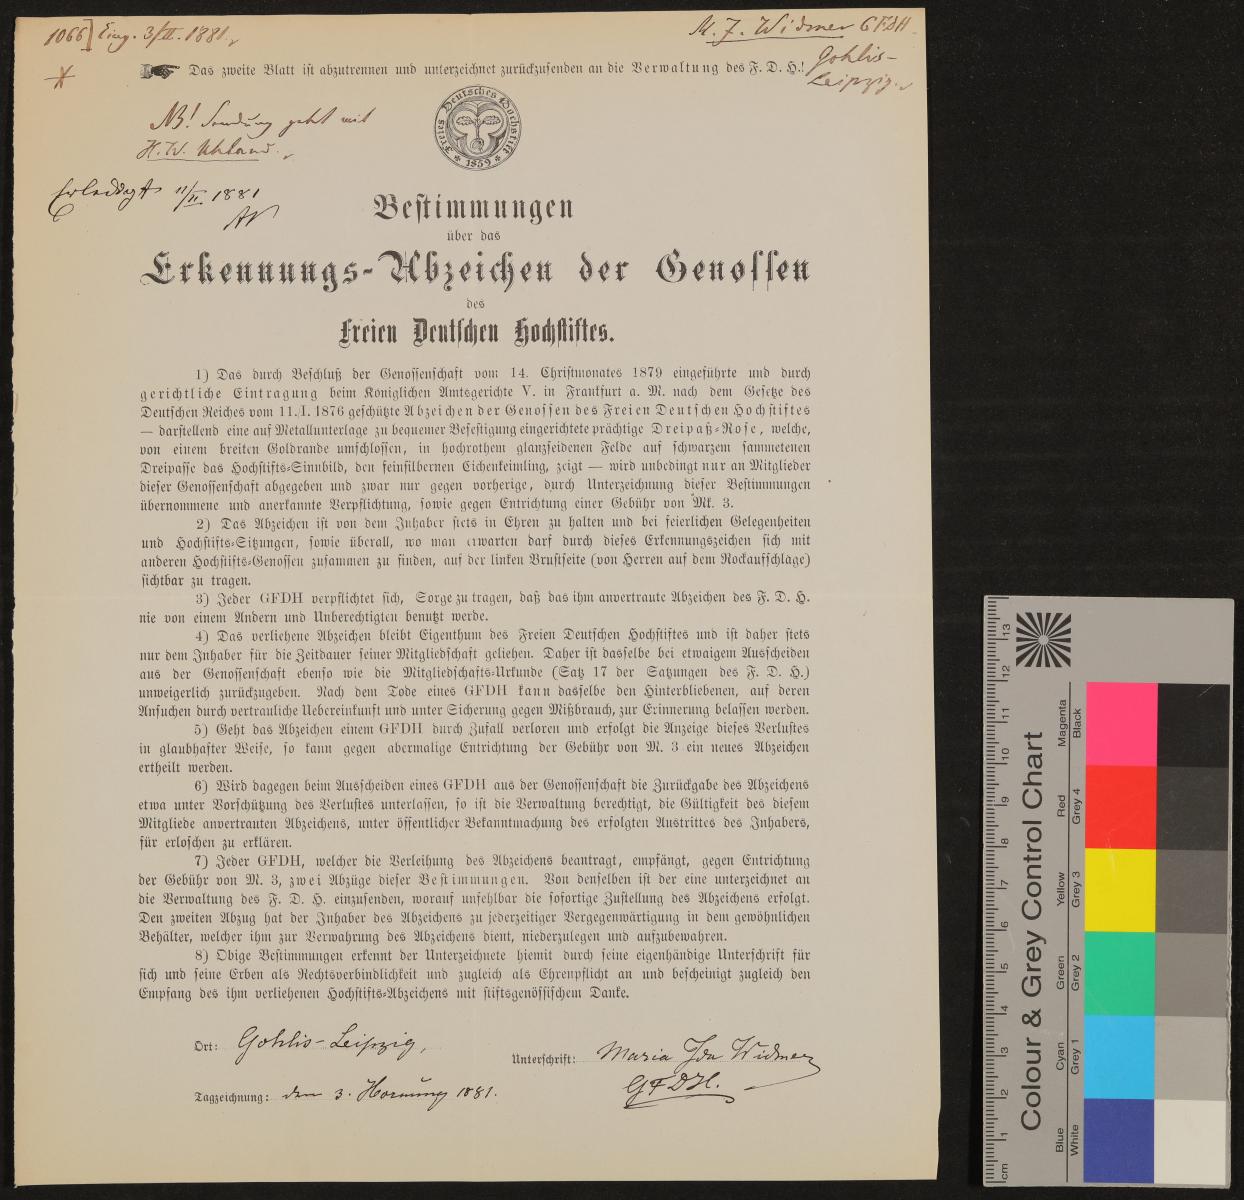 1066] Eing. 3/II. 1881.
M. J. Widmer GFDH.
Gohlis-
Leipzig.
Das zweite Blatt ist abzutrennen und unterzeichnet zurückzusenden an die Verwaltung des F. D. H.!
NB! Sendung geht mit
H. W. Uhland.
Freies Deutsches Hochstift
* 1859 *
Erledigt 11/II 1881
Bestimmungen
über das
Erkennungs-Abzeichen der Genossen
des
Freien Deutschen Hochstiftes.
1) Das durch Beschluß der Genossenschaft vom 14. Christmonates 1879 eingeführte und durch
gerichtliche Eintragung beim Königlichen Amtsgerichte V. in Frankfurt a. M. nach dem Gesetze des
Deutschen Reiches vom 11./I. 1876 geschützte Abzeichen der Genossen des Freien Deutschen Hochstiftes
— darstellend eine auf Metallunterlage zu bequemer Befestigung eingerichtete prächtige Dreipaß-Rose, welche,
von einem breiten Goldrande umschlossen, in hochrothem glanzseidenen Felde auf schwarzem sammetenen
Dreipasse das Hochstifts-Sinnbild, den feinsilbernen Eichenkeimling, zeigt — wird unbedingt nur an Mitglieder
dieser Genossenschaft abgegeben und zwar nur gegen vorherige, durch Unterzeichnung dieser Bestimmungen
übernommene und anerkannte Verpflichtung, sowie gegen Entrichtung einer Gebühr von Mk. 3.
2) Das Abzeichen ist von dem Inhaber stets in Ehren zu halten und bei feierlichen Gelegenheiten
und Hochstifts-Sitzungen, sowie überall, wo man erwarten darf durch dieses Erkennungszeichen sich mit
anderen Hochstifts-Genossen zusammen zu finden, auf der linken Brustseite (von Herren auf dem Rockaufschlage)
sichtbar zu tragen.
3) Jeder GFDH verpflichtet sich, Sorge zu tragen, daß das ihm anvertraute Abzeichen des F. D. H.
nie von einem Andern und Unberechtigten benutzt werde.
4) Das verliehene Abzeichen bleibt Eigenthum des Freien Deutschen Hochstiftes und ist daher stets
nur dem Inhaber für die Zeitdauer seiner Mitgliedschaft geliehen. Daher ist dasselbe bei etwaigem Ausscheiden
aus der Genossenschaft ebenso wie die Mitgliedschafts-Urkunde (Satz 17 der Satzungen des F. D. H.)
unweigerlich zurückzugeben. Nach dem Tode eines GFDH kann dasselbe den Hinterbliebenen, auf deren
Ansuchen durch vertrauliche Uebereinkunft und unter Sicherung gegen Mißbrauch, zur Erinnerung belassen werden.
5) Geht das Abzeichen einem GFDH durch Zufall verloren und erfolgt die Anzeige dieses Verlustes
in glaubhafter Weise, so kann gegen abermalige Entrichtung der Gebühr von M. 3 ein neues Abzeichen
ertheilt werden.
6) Wird dagegen beim Ausscheiden eines GFDH aus der Genossenschaft die Zurückgabe des Abzeichens
etwa unter Vorschützung des Verlustes unterlassen, so ist die Verwaltung berechtigt, die Gültigkeit des diesem
Mitgliede anvertrauten Abzeichens, unter öffentlicher Bekanntmachung des erfolgten Austrittes des Inhabers,
für erloschen zu erklären.
7) Jeder GFDH, welcher die Verleihung des Abzeichens beantragt, empfängt, gegen Entrichtung
der Gebühr von M. 3, zwei Abzüge dieser Bestimmungen. Von denselben ist der eine unterzeichnet an
die Verwaltung des F. D. H. einzusenden, worauf unfehlbar die sofortige Zustellung des Abzeichens erfolgt.
Den zweiten Abzug hat der Inhaber des Abzeichens zu jederzeitiger Vergegenwärtigung in dem gewöhnlichen
Behälter, welcher ihm zur Verwahrung des Abzeichens dient, niederzulegen und aufzubewahren.
8) Obige Bestimmungen erkennt der Unterzeichnete hiemit durch seine eigenhändige Unterschrift für
sich und seine Erben als Rechtsverbindlichkeit und zugleich als Ehrenpflicht an und bescheinigt zugleich den
Empfang des ihm verliehenen Hochstifts-Abzeichens mit stiftsgenössischem Danke.
Ort: Gohlis-Leipzig,
Unterschrift: Maria Ida Widmer
GFDH.
Tagzeichnung: den 3. Hornung 1881.
Colour & Grey Control Chart
Blue Cyan Green Yellow Red Magenta
White Grey 1 Grey 2 Grey 3 Grey 4 Black
cm 1 2 3 4 5 6 7 8 9 10 11 12 13